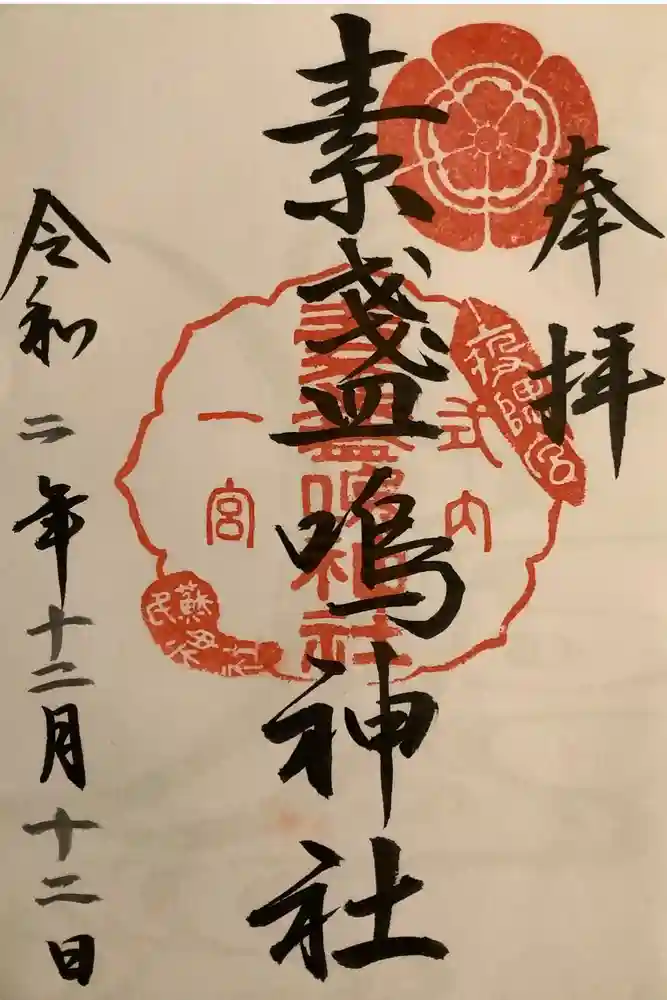 奉拝
素盞嗚神社
式内
素盞嗚神社
一宮
蘇民
令和二年十二月十二日